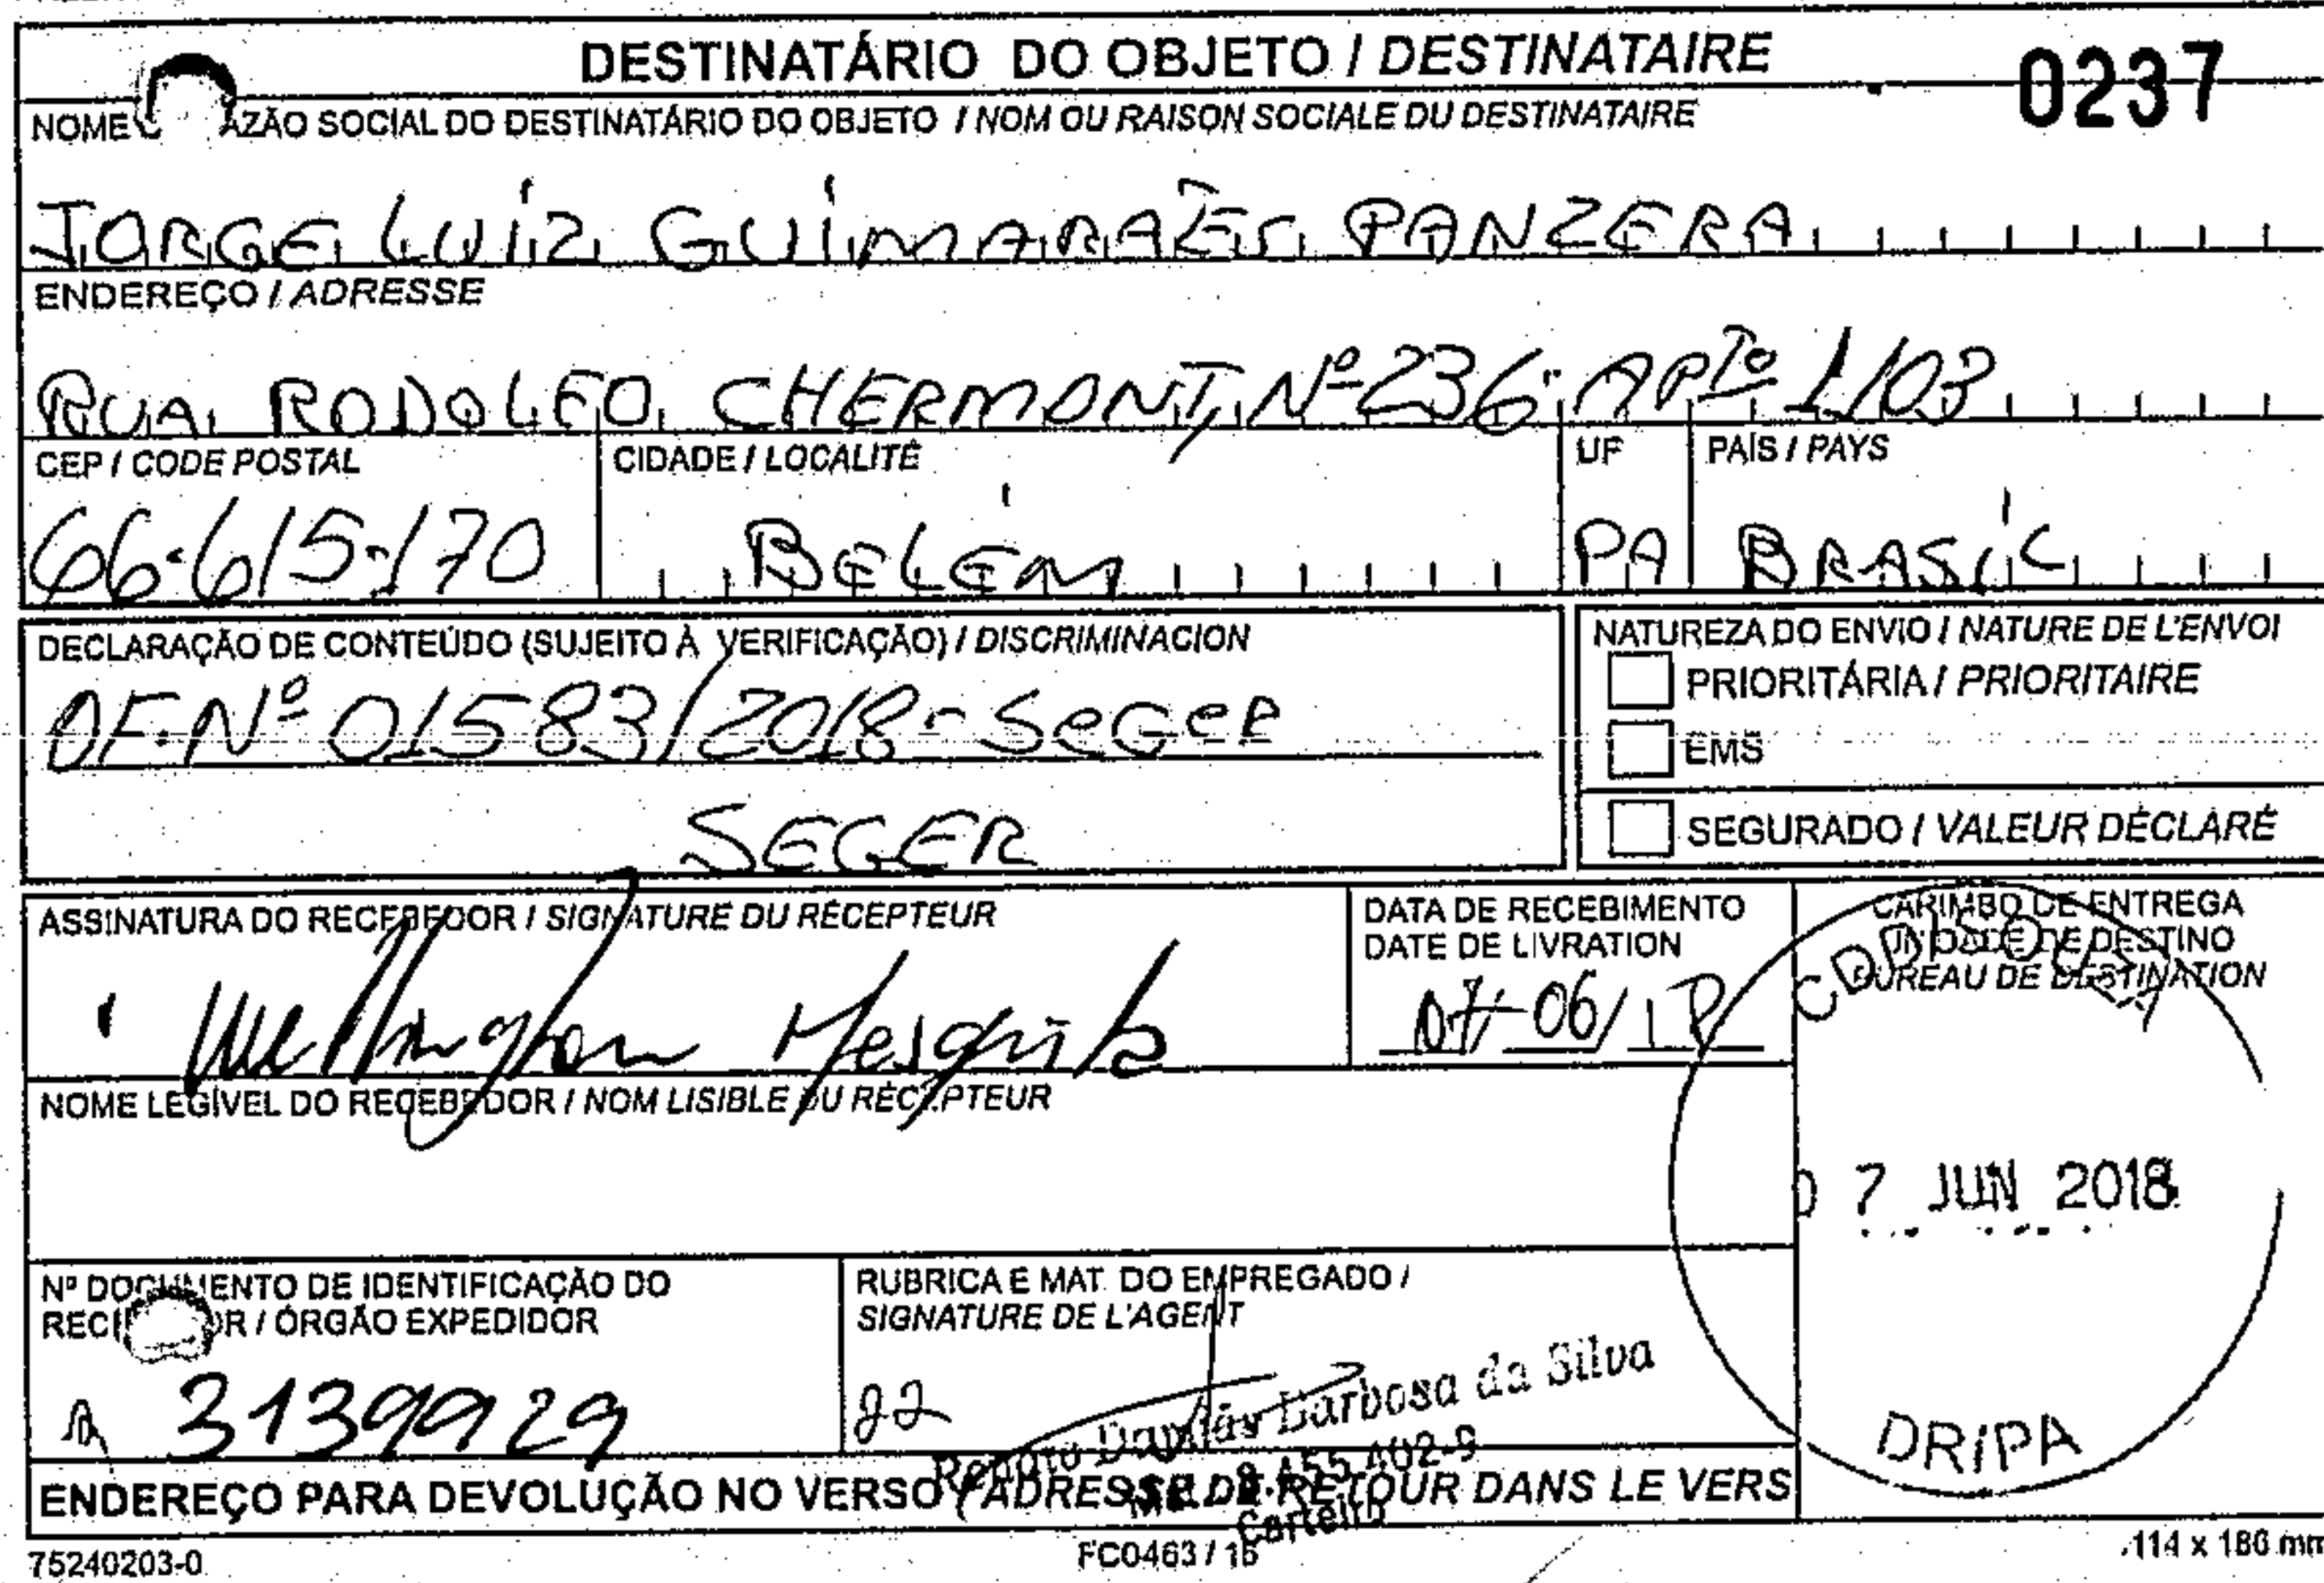 DESTINATÁRIO DO OBJETO / DESTINATAIRE
0237
NOME AZÃO SOCIAL DO DESTINATÁRIO DO OBJETO / NOM OU RAISON SOCIALE DU DESTINATAIRE
JORGE LUIZ GUIMARAÊS PANZERA
ENDEREÇO / ADRESSE
RUA RODOLFO CHERMONT, Nº 236. APTº 1/03
CEP / CODE POSTAL
CIDADE / LOCALITÉ
UF
PAÍS / PAYS
66.615-170
BELÉM
PA
BRASIL
DECLARAÇÃO DE CONTEÚDO (SUJEITO À VERIFICAÇÃO) / DISCRIMINACION
OF. Nº 01583/2018-SeGeP
SEGER
NATUREZA DO ENVIO / NATURE DE L'ENVOI
PRIORITÁRIA / PRIORITAIRE
EMS
SEGURADO / VALEUR DÉCLARÉ
ASSINATURA DO RECEBEDOR / SIGNATURE DU RÉCEPTEUR
Wellington Mesquita
DATA DE RECEBIMENTO
DATE DE LIVRATION
07/06/18
CARIMBO DE ENTREGA
UNIDADE DE DESTINO
BUREAU DE DESTINATION
07 JUN 2018
DRIPA
NOME LEGÍVEL DO RECEBEDOR / NOM LISIBLE DU RÉCEPTEUR
Nº DOCUMENTO DE IDENTIFICAÇÃO DO
RECEBEDOR / ÓRGÃO EXPEDIDOR
3139929
RUBRICA E MAT. DO EMPREGADO /
SIGNATURE DE L'AGENT
Barbosa da Silva
Carteiro
ENDEREÇO PARA DEVOLUÇÃO NO VERSO / ADRESSE DE RETOUR DANS LE VERS
75240203-0
FC0463 / 15
114 x 186 mm